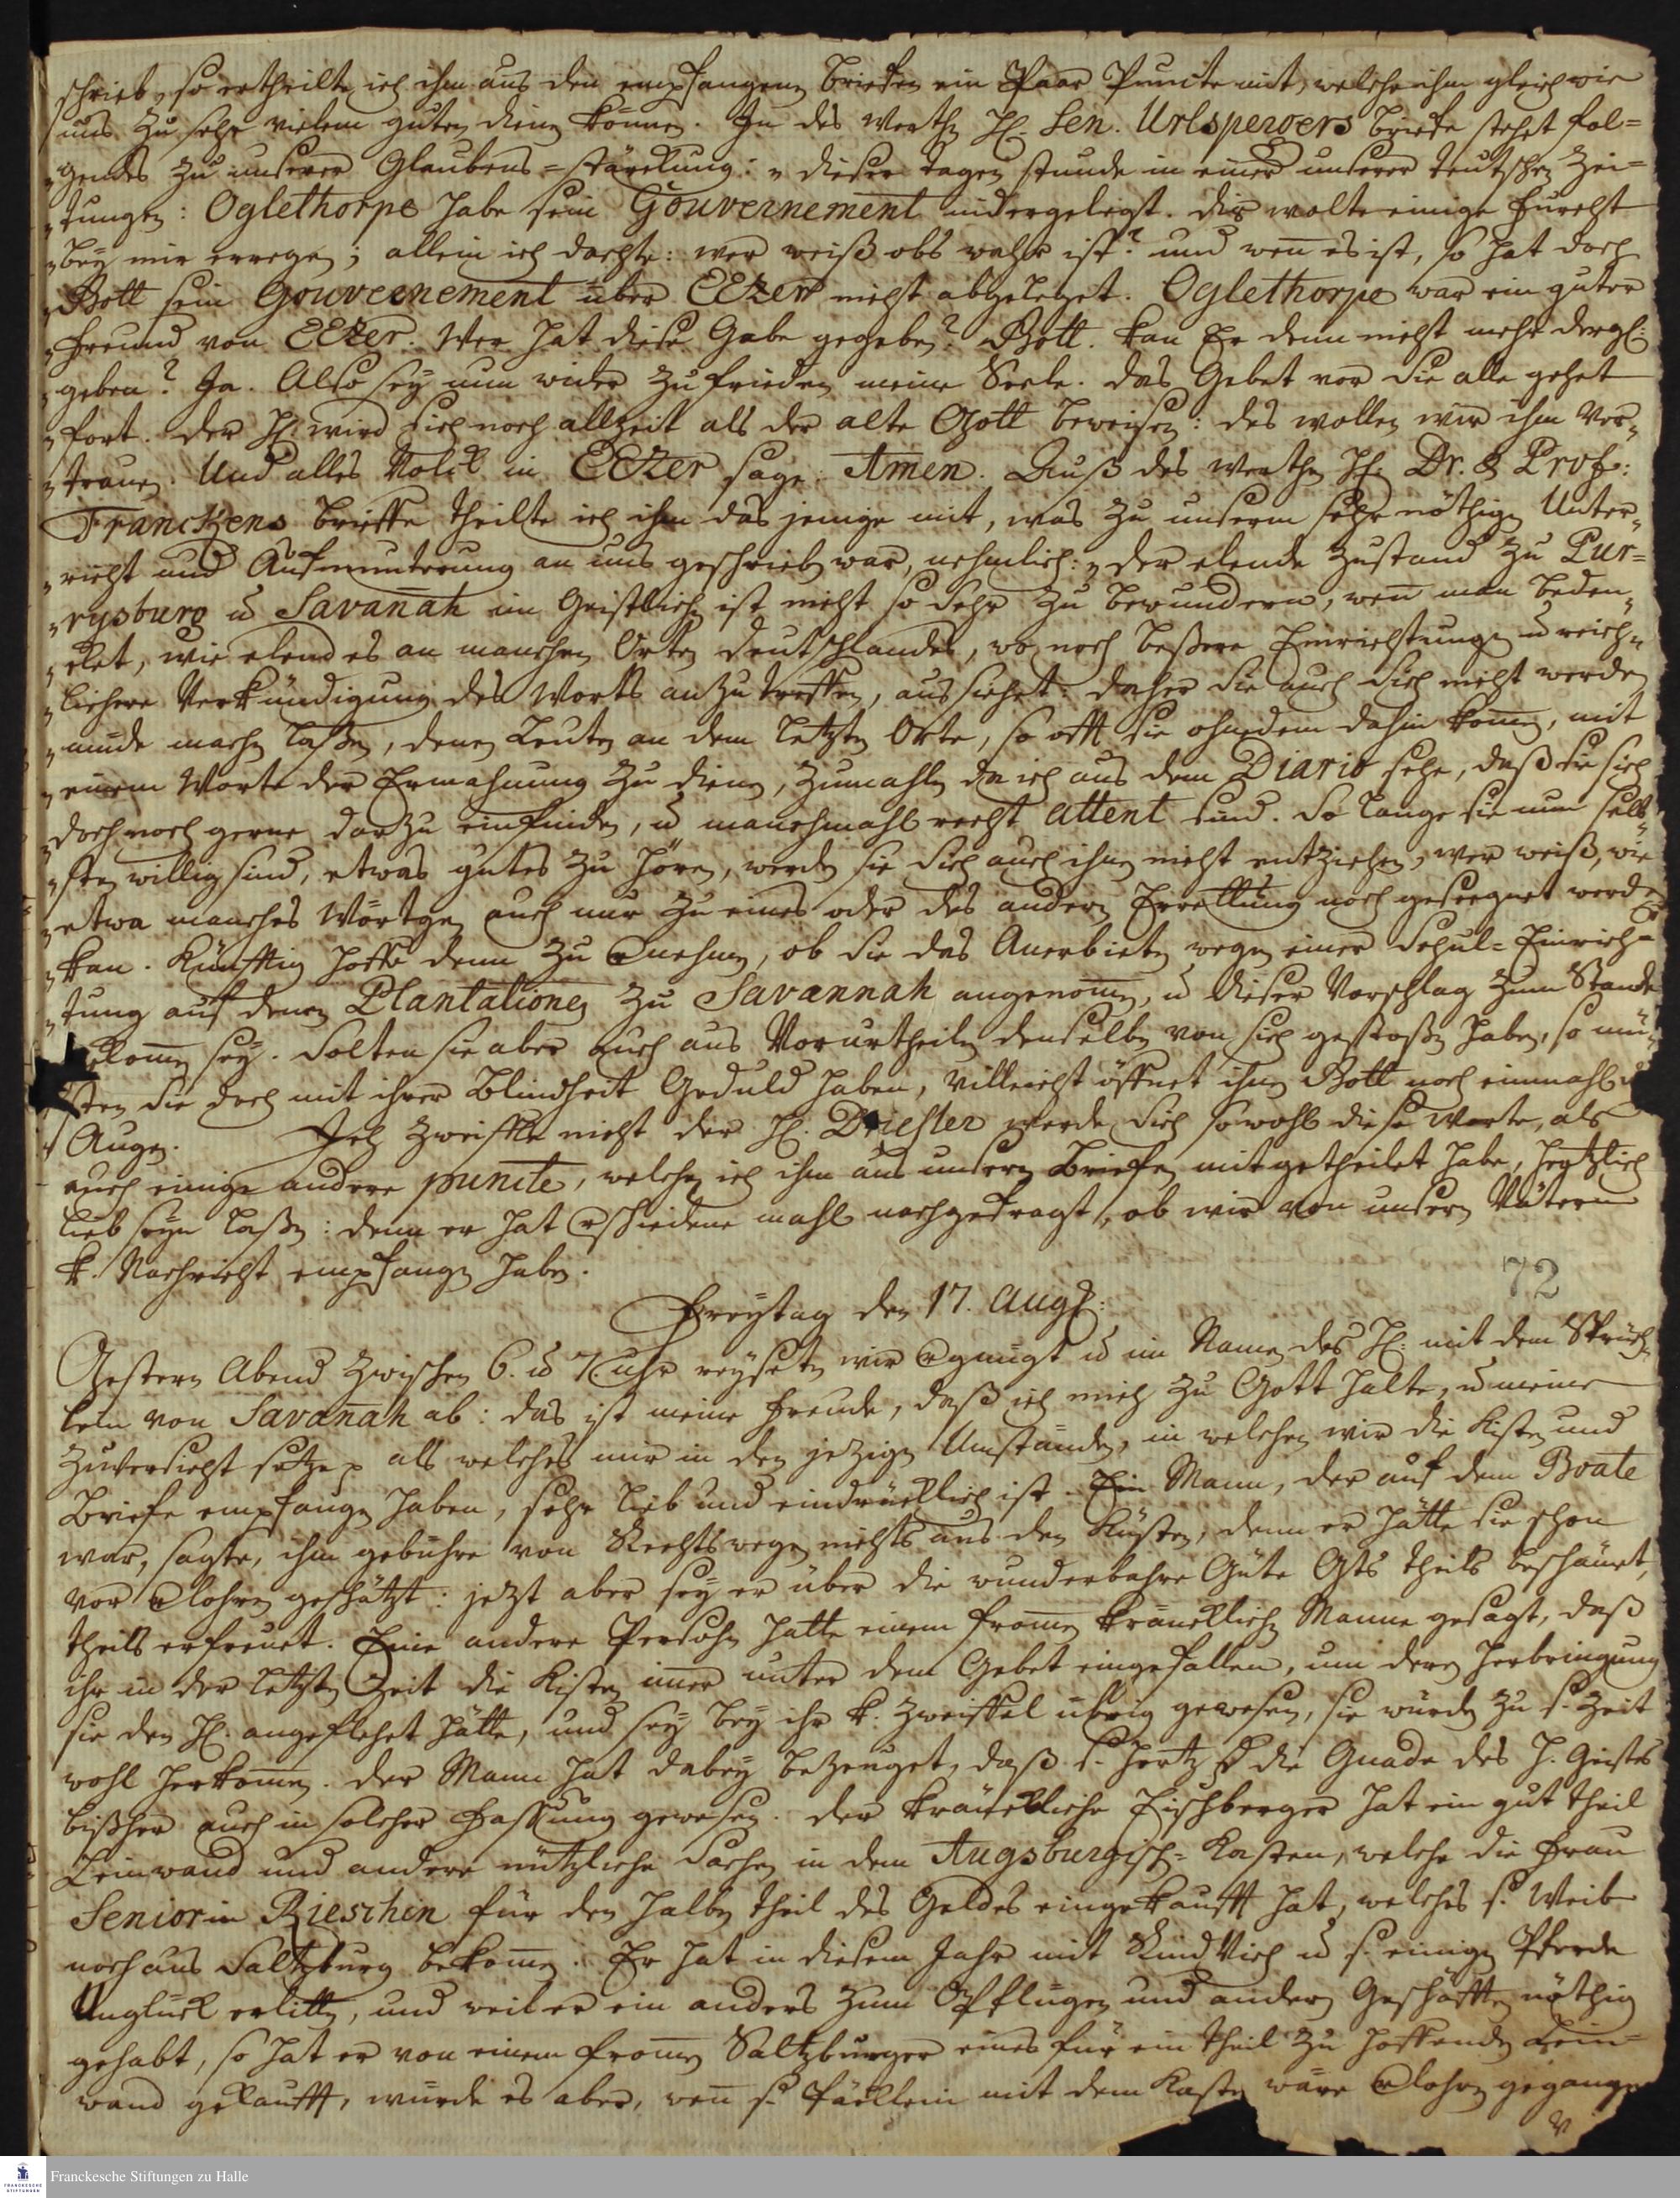 schrieb, so ertheilte ich ihm aus den empfangenen briefen ein Paar Puncte mit, welche ihm gleich wie
uns zu sehr vielem guten dienen können. In des werthen H. Sen. Urlspergers briefe stehet fol=
„gendes zu unserer Glaubens=stärckung: „dieser tagen stunde in einer unserer teutschen Zei=
„tungen: Oglethorpe habe sein Gouvernement nidergelegt. dis wolte einige furcht
„bey mir erregen; allein ich dachte: wer weiß obs wahr ist? und wen̄ es ist, so hat doch
„Gott sein Gouvernement über EEzer nicht abgeleget. Oglethorpe war ein guter
„freund von EEzer. Wer hat diese Gabe gegeben? Gott. kan Er denn nicht mehr dergl:
„geben? Ja. Also sey nun wider zu frieden meine Seele. das Gebet vor sie alle gehet
„fort. der H. wird sich noch allzeit als der alte Gott beweisen: des wollen wir ihm ver„
„trauen. Und alles Volck in EEzer sage: Amen. Auß des werthen H. Dr. & Prof:
Franckens brieffe theilte ich ihm das jenige mit, was zu unserm sehr nöthigen Unter„
„richt und Aufmunterung an uns geschrieben war, nehmlich: „der elende zustand zu Pur=
„rysburg u Savan̄ah im Geistlichen ist nicht so sehr zu bewundern, wen̄ man beden„
„cket, wie elend es an manchen Orten deutschlandes, wo noch beßere Einrichtungen u reich„
„lichere Verkündigung des Worts anzutreffen, aussiehet: daher sie auch sich nicht werden
„müde machen laßen, denen Leuten an dem letzten Orte, so offt sie ohnedem dahin kom̄en, mit
„einem Worte der Ermahnung zu dienen, zumahlen da ich aus dem Diario sehe, daß sie sich
„doch noch gerne darzu einfinden, u manchmahl recht attent sind. So lange sie nun selb„
„sten willig sind, etwas gutes zu hören, werden sie sich auch ihnen nicht entziehen, wer weiß, wie
„etwa manches Wörtgen auch nur zu eines oder des andern Errettung noch gesegnet werden
„kan. Künfftig hoffe denn zu vernehmen, ob sie das Anerbieten wegen einer Schul=Einrich=
„tung auf denen Plantationen zu Savannah angenom̄en, u dieser Vorschlag zum Stande
kom̄en sey. Solten sie aber auch aus Vorurtheilen denselben von sich gestoßen haben, so mü„
sten sie doch mit ihrer Blindheit Geduld haben, villeicht öffnet ihnen Gott noch einmahl d
Augen. Ich zweiffle nicht der H. Driesler werde sich sowohl diese Worte, als
auch einige andere puncte, welche ich ihm aus unsern Briefen mitgetheilet habe, hertzlich
lieb seyn laßen: denn er hat verschiedene mahl nachgefragt, ob wir von unsern Vätern
k. Nachricht empfangen haben.
72
Freytag den 17. Augs:
Gestern Abend zwischen 6. u 7. uhr reyseten wir vergnügt u im Namen des H. mit dem Sprüch„
lein von Savan̄ah ab: das ist meine freude, daß ich mich zu Gott halte, u meine
Zuversicht setze p als welches mir in den jezigen Umständen, in welchen wir die Kisten und
Briefe empfangen haben, sehr lieb und eindrücklich ist. Ein Mann, der auf dem Boate
war, sagte, ihm gebühre von Rechtswegen nichts aus den Kisten, denn er hätte sie schon
vor verlohren geschätzt: jetzt aber sey er über die wunderbahre Güte Gts theils beschämet,
theils erfreuet. Eine andere Persohn hatte einem from̄en kräncklichen Manne gesagt, daß
ihr in der letzten Zeit die Kisten im̄er unter dem Gebet eingefallen, um deren herbringung
sie den H. angeflehet hätte, und sey bey ihr k. zweiffel übrig gewesen, sie würden zu s. Zeit
wohl herkom̄en. der Mann hat dabey bezeuget, daß s. hertz durch die Gnade des H. Geistes
bißher auch in solcher fassung gewesen. der kränckliche Eischberger hat ein gut theil
Leinwand und andere nützliche Sachen in dem Augsburgisch=Kasten, welche die frau
Seniorin Rieschin für den halben theil des Geldes eingekaufft hat, welches s. Weib
noch aus Saltzburg bekom̄en. Er hat in diesem Jahr mit Rind Vieh u s. einigen Pferde
Unglück erlitten, und weil er ein anders zum Pflügen und andern Geschäfften nöthig
gehabt, so hat er von einem from̄en Saltzburger eines für ein theil zu hoffenden Lein=
wand gekaufft, würde es aber, wen̄ s. päcklein mit dem Kasten wäre verlohren gegangen
Franckesche Stiftungen zu Halle